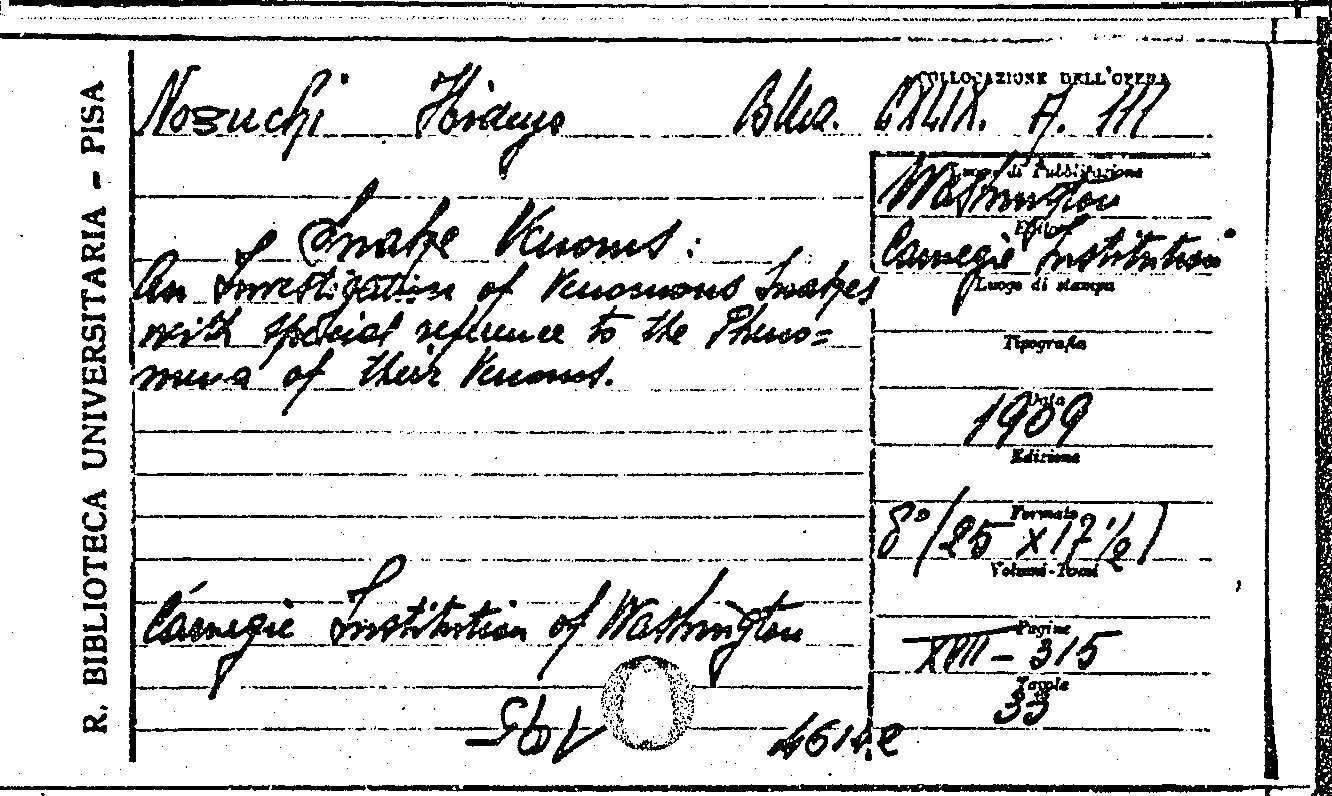 R. BIBLIOTECA UNIVERSITARIA – PISA
COLLOCAZIONE DELL'OPERA
Noguchi Hideyo
CXLIX. A. 111
Luogo di Pubblicazione
Washington
Snake Venoms:
Editore
Carnegie Institution
An Investigation of Venomous Snakes
Luogo di stampa
with special reference to the Pheno=
Tipografia
mena of their Venoms.
Data
1909
Edizione
Formato
8° (25 x 17 1/2)
Volumi-Tomi
Carnegie Institution of Washington
Pagine
XVII – 315
Tavole
33